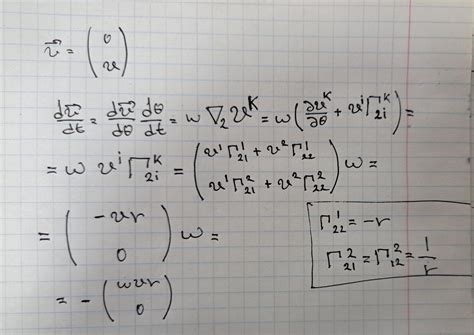 v⃗ = (0
v)
dv⃗/dt = dv⃗/dθ dθ/dt = w ∇₂ v^K = w (∂v^K/∂θ + v^i Γ^K_2i) =
= w v^i Γ^K_2i = (v^1 Γ^1_21 + v^2 Γ^1_22
v^1 Γ^2_21 + v^2 Γ^2_22) w =
= (-vr
0) w =
= - (wvr
0)
Γ^1_22 = -r
Γ^2_21 = Γ^2_12 = 1/r